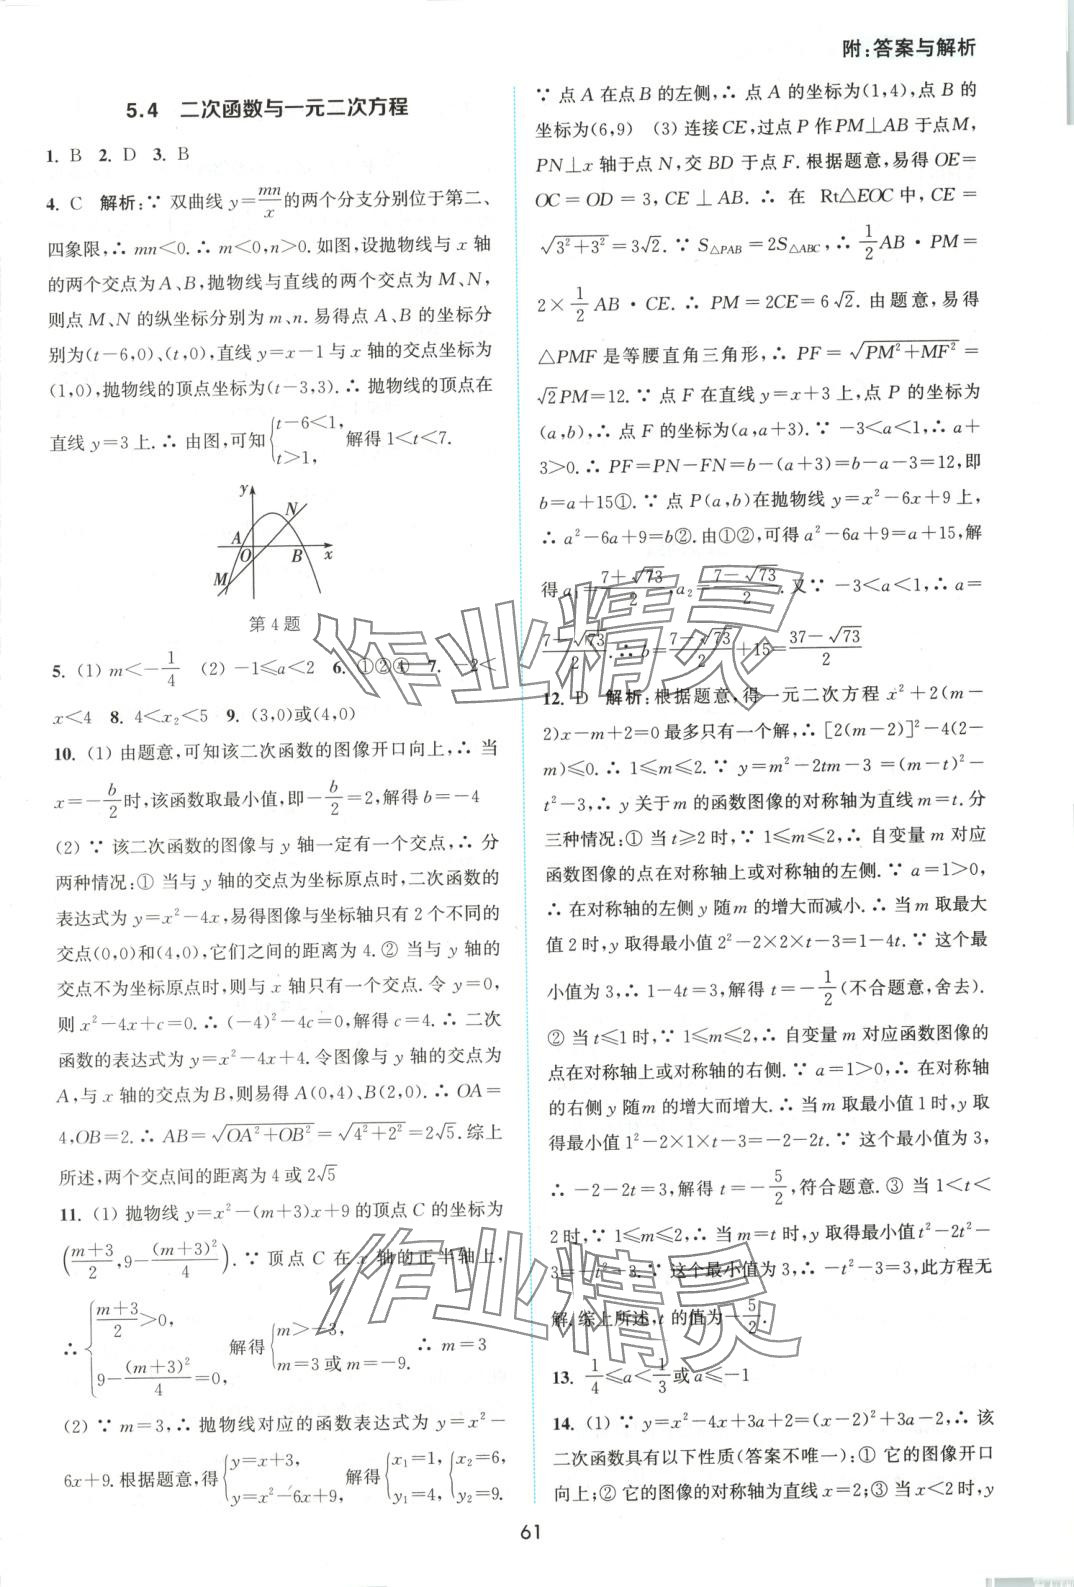 附:答案与解析
5.4 二次函数与一元二次方程
1. B 2. D 3. B
4. C 解析:∵ 双曲线 y=mn/x的两个分支分别位于第二、
四象限,∴ mn<0.∴ m<0,n>0.如图,设抛物线与 x 轴
的两个交点为 A、B,抛物线与直线的两个交点为 M、N,
则点 M、N 的纵坐标分别为 m、n.易得点 A、B 的坐标分
别为(t-6,0)、(t,0),直线 y=x-1与 x 轴的交点坐标为
(1,0),抛物线的顶点坐标为(t-3,3).∴ 抛物线的顶点在
直线 y=3上.∴ 由图,可知{t-6<1, t>1, 解得 1<t<7.
y
N
A
O
B
x
M
第 4 题
5. (1) m<-1/4 (2) -1≤a<2 6. ①②④ 7. -2<
x<4 8. 4<x₂<5 9. (3,0)或(4,0)
10. (1) 由题意,可知该二次函数的图像开口向上,∴ 当
x=-b/2时,该函数取最小值,即-b/2=2,解得 b=-4
(2) ∵ 该二次函数的图像与 y 轴一定有一个交点,∴ 分
两种情况:① 当与 y 轴的交点为坐标原点时,二次函数的
表达式为 y=x²-4x,易得图像与坐标轴只有 2 个不同的
交点(0,0)和(4,0),它们之间的距离为 4.② 当与 y 轴的
交点不为坐标原点时,则与 x 轴只有一个交点.令 y=0,
则 x²-4x+c=0.∴ (-4)²-4c=0,解得 c=4.∴ 二次
函数的表达式为 y=x²-4x+4.令图像与 y 轴的交点为
A,与 x 轴的交点为 B,则易得 A(0,4)、B(2,0).∴ OA=
4,OB=2.∴ AB=√(OA²+OB²)=√(4²+2²)=2√5.综上
所述,两个交点间的距离为 4 或 2√5
11. (1) 抛物线 y=x²-(m+3)x+9 的顶点 C 的坐标为
((m+3)/2,9-(m+3)²/4).∵ 顶点 C 在 x 轴的正半轴上,
∴ {(m+3)/2>0, 9-(m+3)²/4=0, 解得{m>-3, m=3或 m=-9. ∴ m=3
(2) ∵ m=3,∴ 抛物线对应的函数表达式为 y=x²-
6x+9.根据题意,得{y=x+3, y=x²-6x+9, 解得{x₁=1, y₁=4, {x₂=6, y₂=9.
∵ 点 A 在点 B 的左侧,∴ 点 A 的坐标为(1,4),点 B 的
坐标为(6,9) (3) 连接 CE,过点 P 作 PM⊥AB 于点 M,
PN⊥x 轴于点 N,交 BD 于点 F.根据题意,易得 OE=
OC=OD=3,CE⊥AB.∴ 在 Rt△EOC 中,CE=
√(3²+3²)=3√2.∵ S△PAB=2S△ABC,∴ 1/2AB·PM=
2×1/2AB·CE.∴ PM=2CE=6√2.由题意,易得
△PMF 是等腰直角三角形,∴ PF=√(PM²+MF²)=
√2PM=12.∵ 点 F 在直线 y=x+3 上,点 P 的坐标为
(a,b),∴ 点 F 的坐标为(a,a+3).∵ -3<a<1,∴ a+
3>0.∴ PF=PN-FN=b-(a+3)=b-a-3=12,即
b=a+15①.∵ 点 P(a,b)在抛物线 y=x²-6x+9 上,
∴ a²-6a+9=b②.由①②,可得 a²-6a+9=a+15,解
得 a₁=(7+√73)/2,a₂=(7-√73)/2.又∵ -3<a<1,∴ a=
(7-√73)/2.∴ b=(7-√73)/2+15=(37-√73)/2
12. D 解析:根据题意,得一元二次方程 x²+2(m-
2)x-m+2=0最多只有一个解,∴ [2(m-2)]²-4(2-
m)≤0.∴ 1≤m≤2.∵ y=m²-2tm-3=(m-t)²-
t²-3,∴ y 关于 m 的函数图像的对称轴为直线 m=t.分
三种情况:① 当 t≥2 时,∵ 1≤m≤2,∴ 自变量 m 对应
函数图像的点在对称轴上或对称轴的左侧.∵ a=1>0,
∴ 在对称轴的左侧 y 随 m 的增大而减小.∴ 当 m 取最大
值 2 时,y 取得最小值 2²-2×2×t-3=1-4t.∵ 这个最
小值为 3,∴ 1-4t=3,解得 t=-1/2(不合题意,舍去).
② 当 t≤1 时,∵ 1≤m≤2,∴ 自变量 m 对应函数图像的
点在对称轴上或对称轴的右侧.∵ a=1>0,∴ 在对称轴
的右侧 y 随 m 的增大而增大.∴ 当 m 取最小值 1 时,y 取
得最小值 1²-2×1×t-3=-2-2t.∵ 这个最小值为 3,
∴ -2-2t=3,解得 t=-5/2,符合题意.③ 当 1<t<
2 时,∵ 1≤m≤2,∴ 当 m=t 时,y 取得最小值 t²-2t²-
3=-t²-3.∵ 这个最小值为 3,∴ -t²-3=3,此方程无
解.综上所述,t 的值为-5/2.
13. 1/4≤a<1/3或 a≤-1
14. (1) ∵ y=x²-4x+3a+2=(x-2)²+3a-2,∴ 该
二次函数具有以下性质(答案不唯一):① 它的图像开口
向上;② 它的图像的对称轴为直线 x=2;③ 当 x<2时,y
61
作业精灵
作业精灵